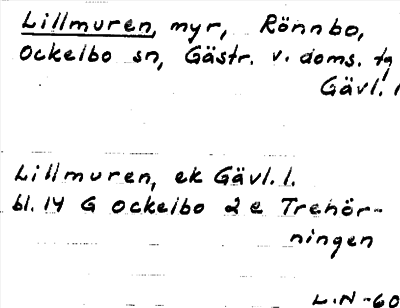 Lillmuren, myr, Rönnbo,
Ockelbo sn, Gästr. v. doms. tg
Gävl. l
Lillmuren, ek Gävl. l.
bl. 14 G Ockelbo 2 e Trehör-
ningen
L.N -60